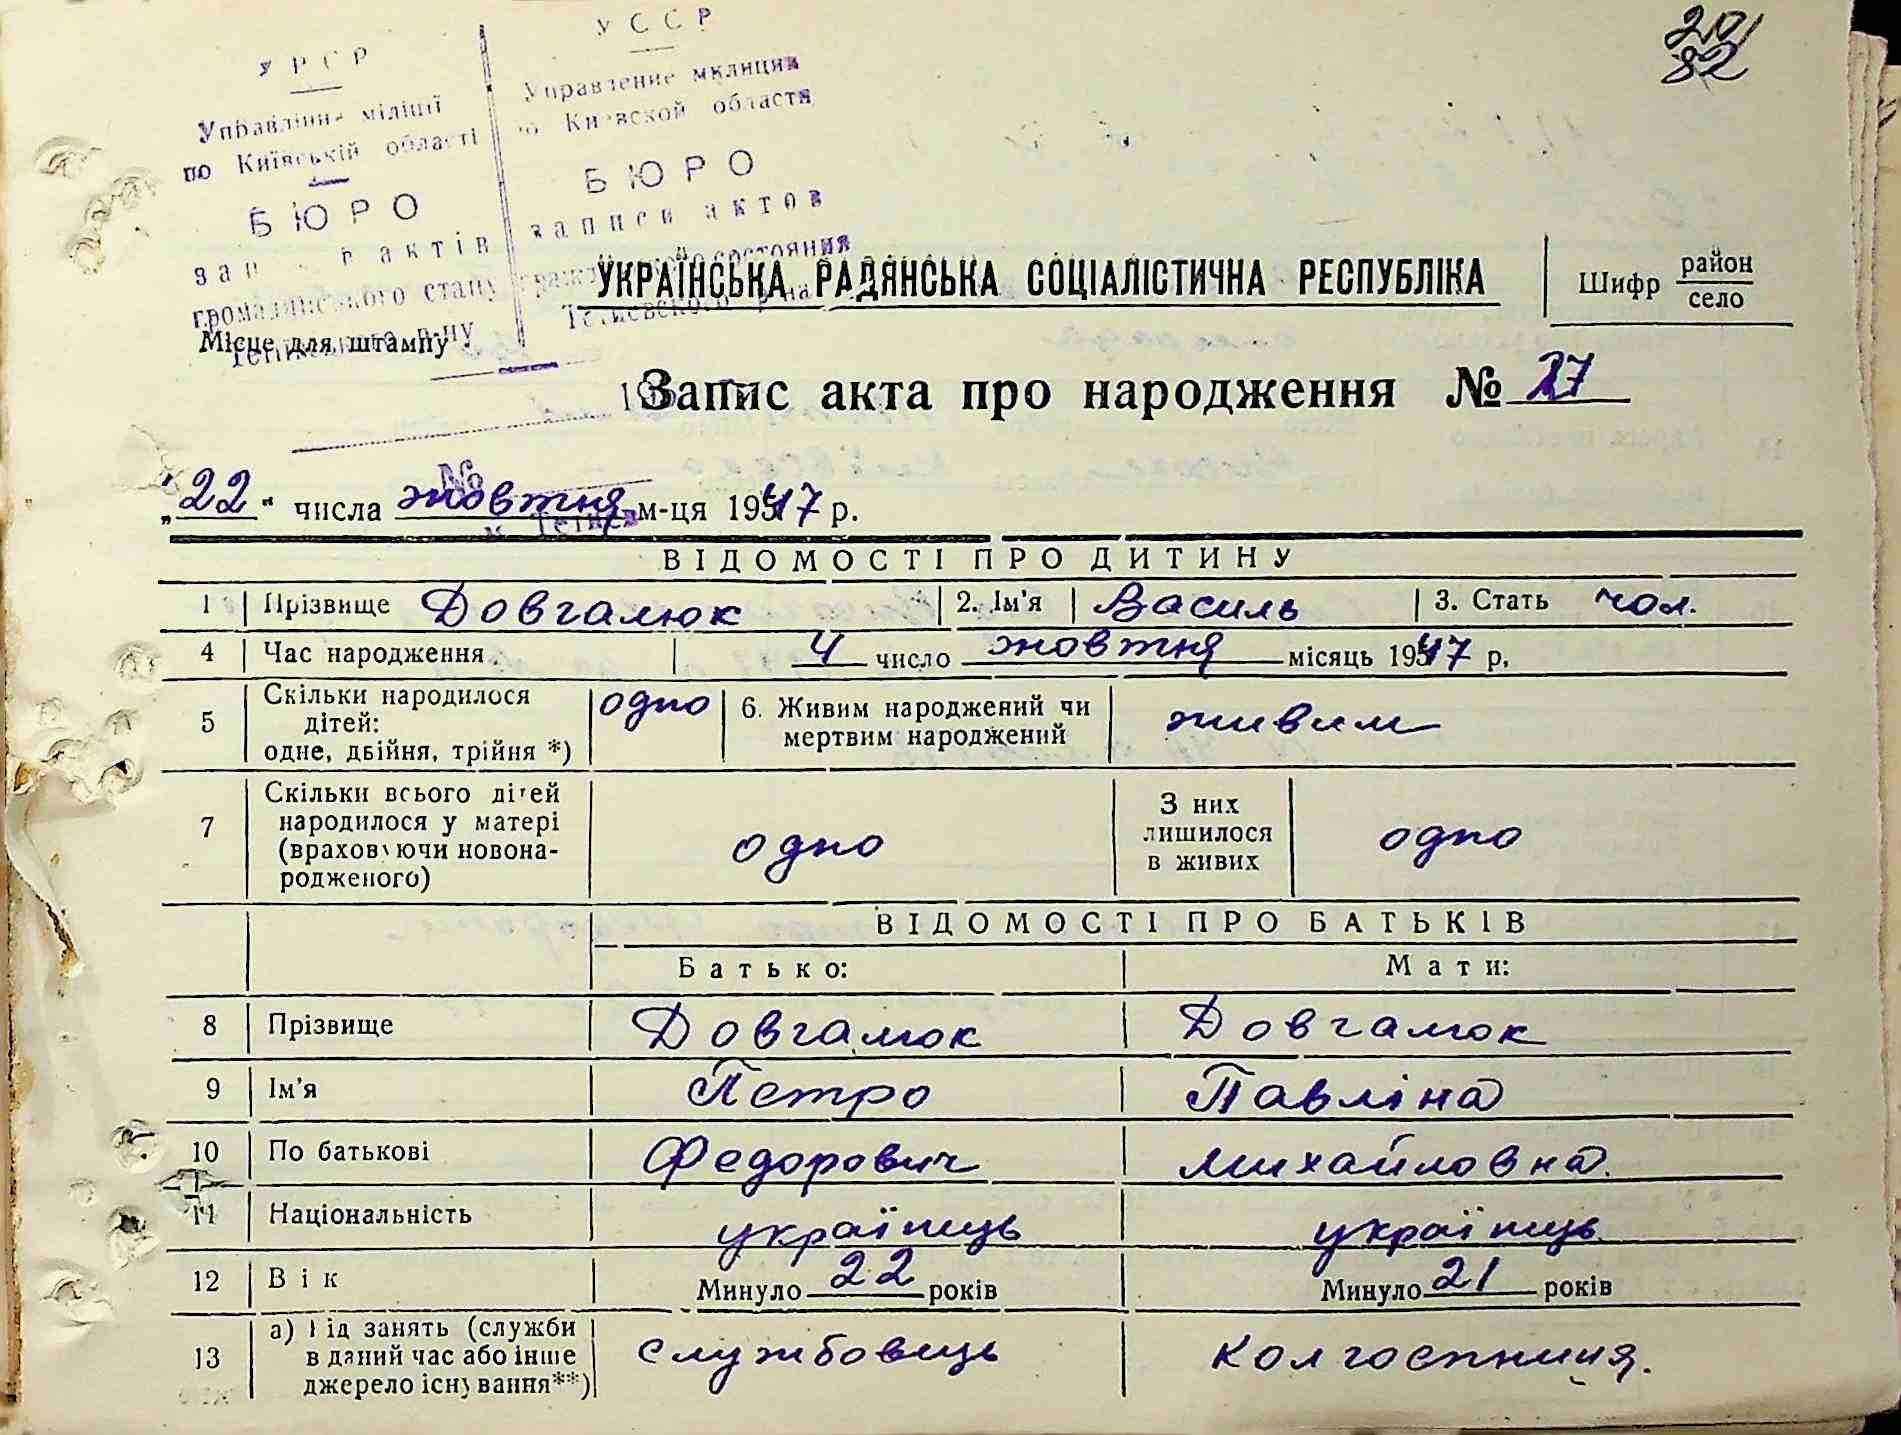 20
82
УРСР
Управління міліції
по Київській області
БЮРО
зап в актів
громадянського стану
УССР
Управление милиции
по Киевской области
БЮРО
записи актов
гражданского состояния
Тетиевского р-на
Місце для штампу
УКРАЇНСЬКА РАДЯНСЬКА СОЦІАЛІСТИЧНА РЕСПУБЛІКА
Шифр район
село
Запис акта про народження № 27
№
„22“ числа жовтня м-ця 1947 р.
ВІДОМОСТІ ПРО ДИТИНУ
1 Прізвище Довгалюк 2. Ім'я Василь 3. Стать чол.
4 Час народження 4 число жовтня місяць 1947 р.
5 Скільки народилося дітей: одне, двійня, трійня *) одно 6. Живим народжений чи мертвим народжений живим
7 Скільки всього дітей народилося у матері (враховуючи новонародженого) одно З них лишилося в живих одно
ВІДОМОСТІ ПРО БАТЬКІВ
Батько: Мати:
8 Прізвище Довгалюк Довгалюк
9 Ім'я Петро Павліна
10 По батькові Федорович Михайловна
11 Національність українець українець
12 Вік Минуло 22 років Минуло 21 років
13 а) Під занять (служби в даний час або інше джерело існування**) службовець колгоспниця.